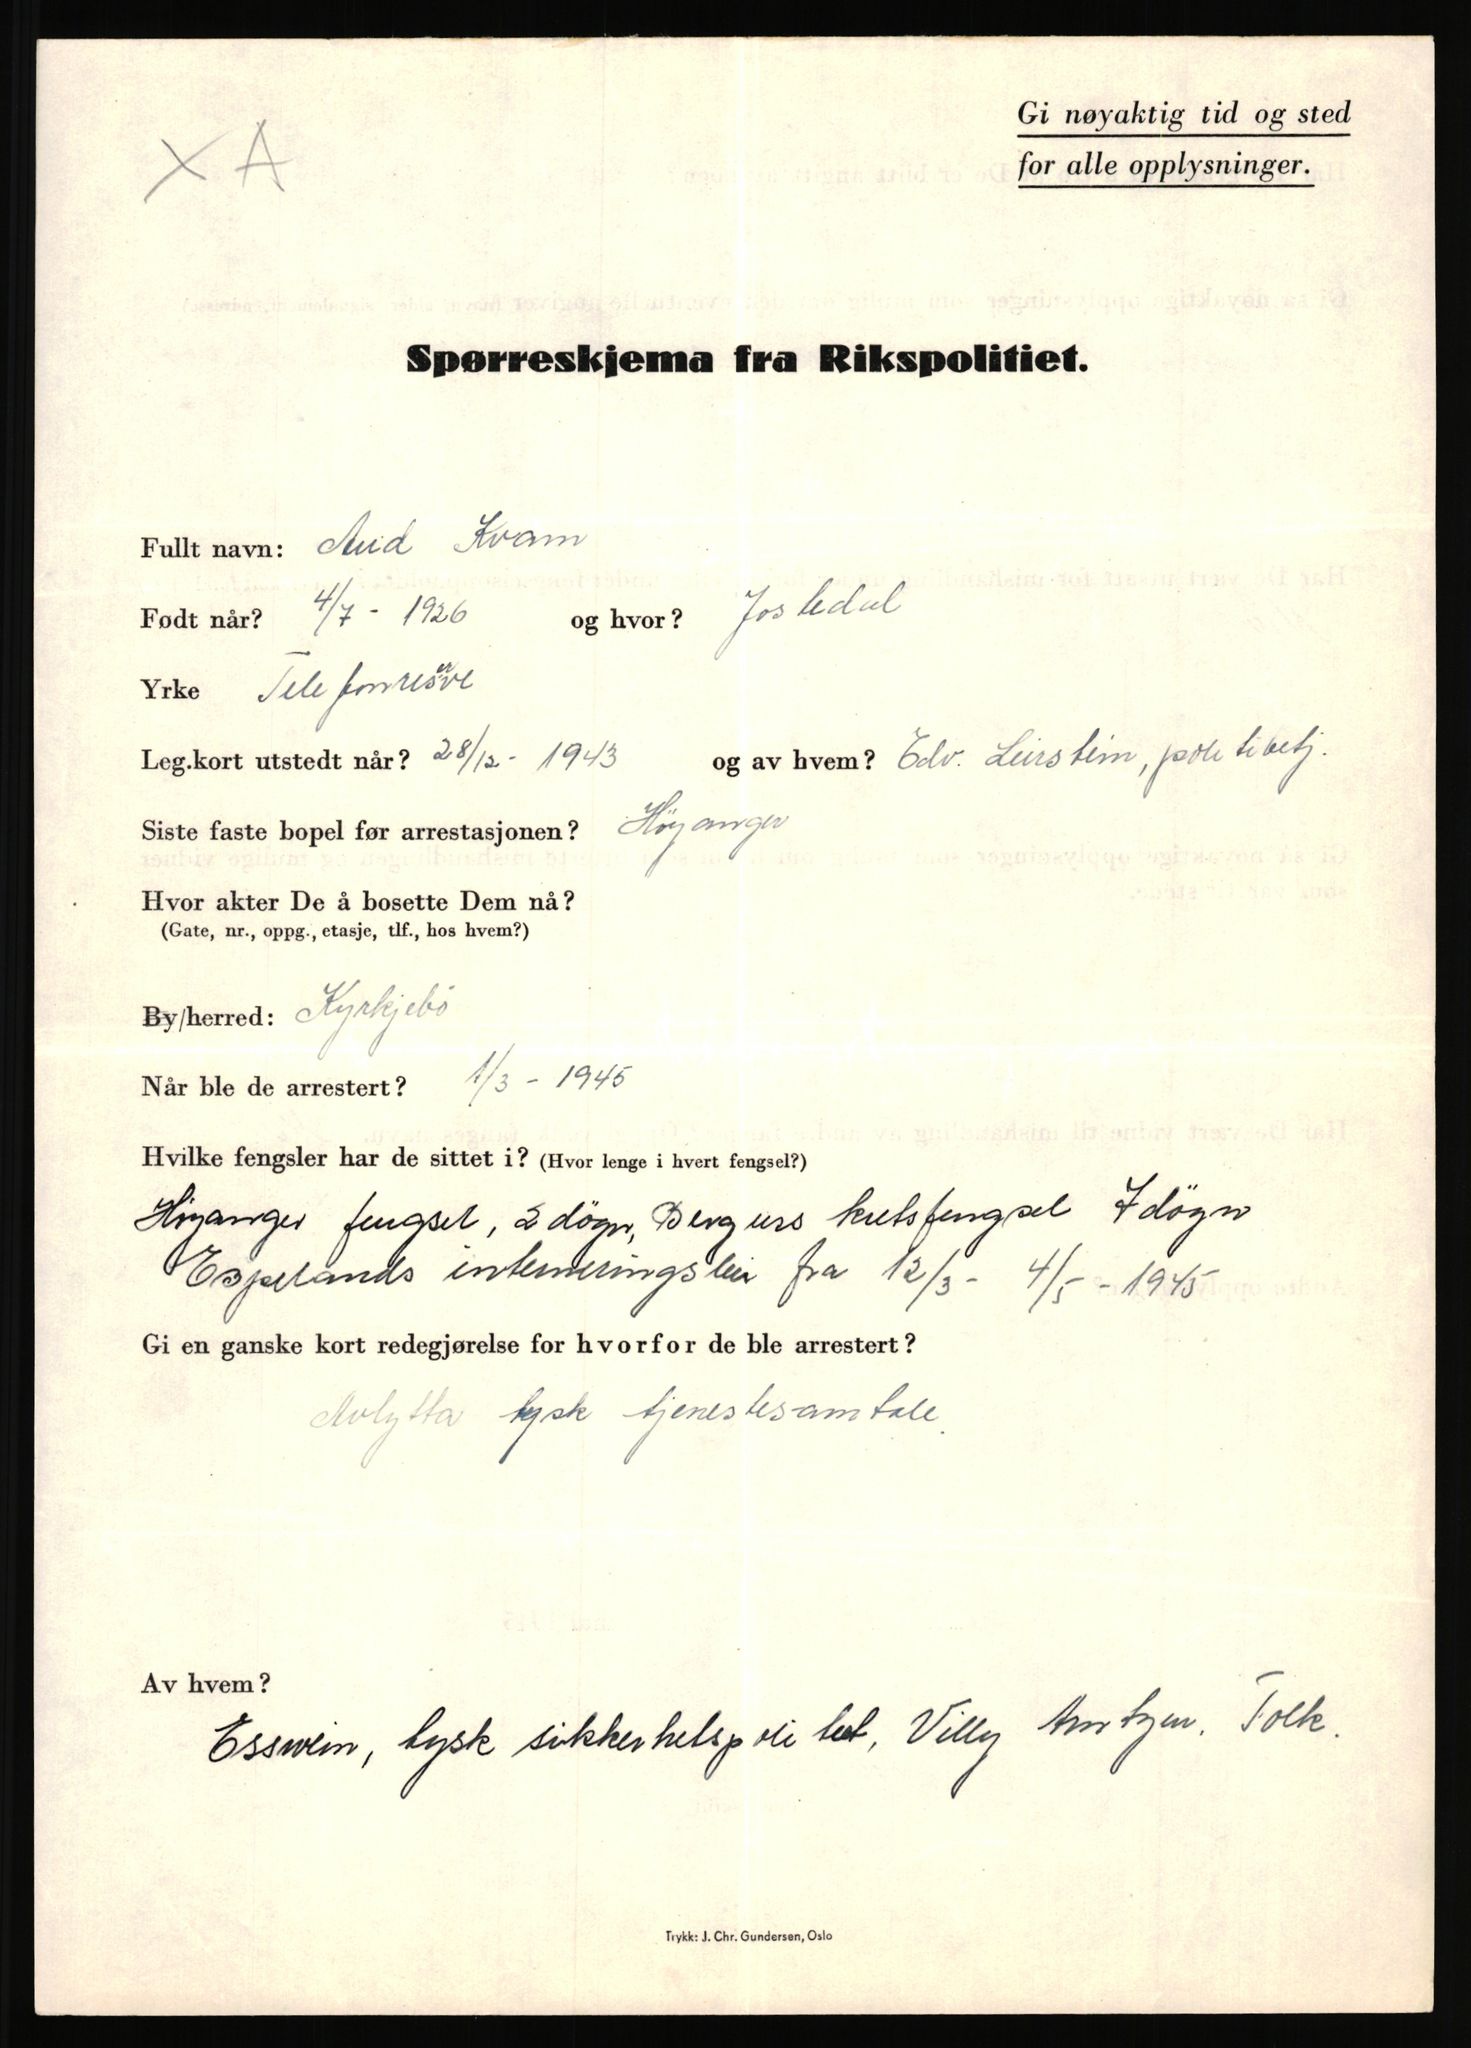 X A
Gi nøyaktig tid og sted
for alle opplysninger.
Spørreskjema fra Rikspolitiet.
Fullt navn: Aud Kvam
Født når? 4/7 - 1926 og hvor? Jostedal
Yrke Telefonreserve
Leg.kort utstedt når? 28/12 - 1943 og av hvem? Edv. Leirstein, politibetj.
Siste faste bopel før arrestasjonen? Höyanger
Hvor akter De å bosette Dem nå?
(Gate, nr., oppg., etasje, tlf., hos hvem?)
By/herred: Kyrkjebö
Når ble de arrestert? 1/3 - 1945
Hvilke fengsler har de sittet i? (Hvor lenge i hvert fengsel?)
Höyanger fengsel, 2 dögn, Bergens kretsfengsel 7 dögn
Espelands interneringsleir fra 12/3 - 4/5 - 1945
Gi en ganske kort redegjørelse for hvorfor de ble arrestert?
Avlytta tysk tjenestesamtale.
Av hvem?
Esswein, tysk sikkerhetspolitet, Villy Arntzen. Tolk.
Trykk: J. Chr. Gundersen, Oslo